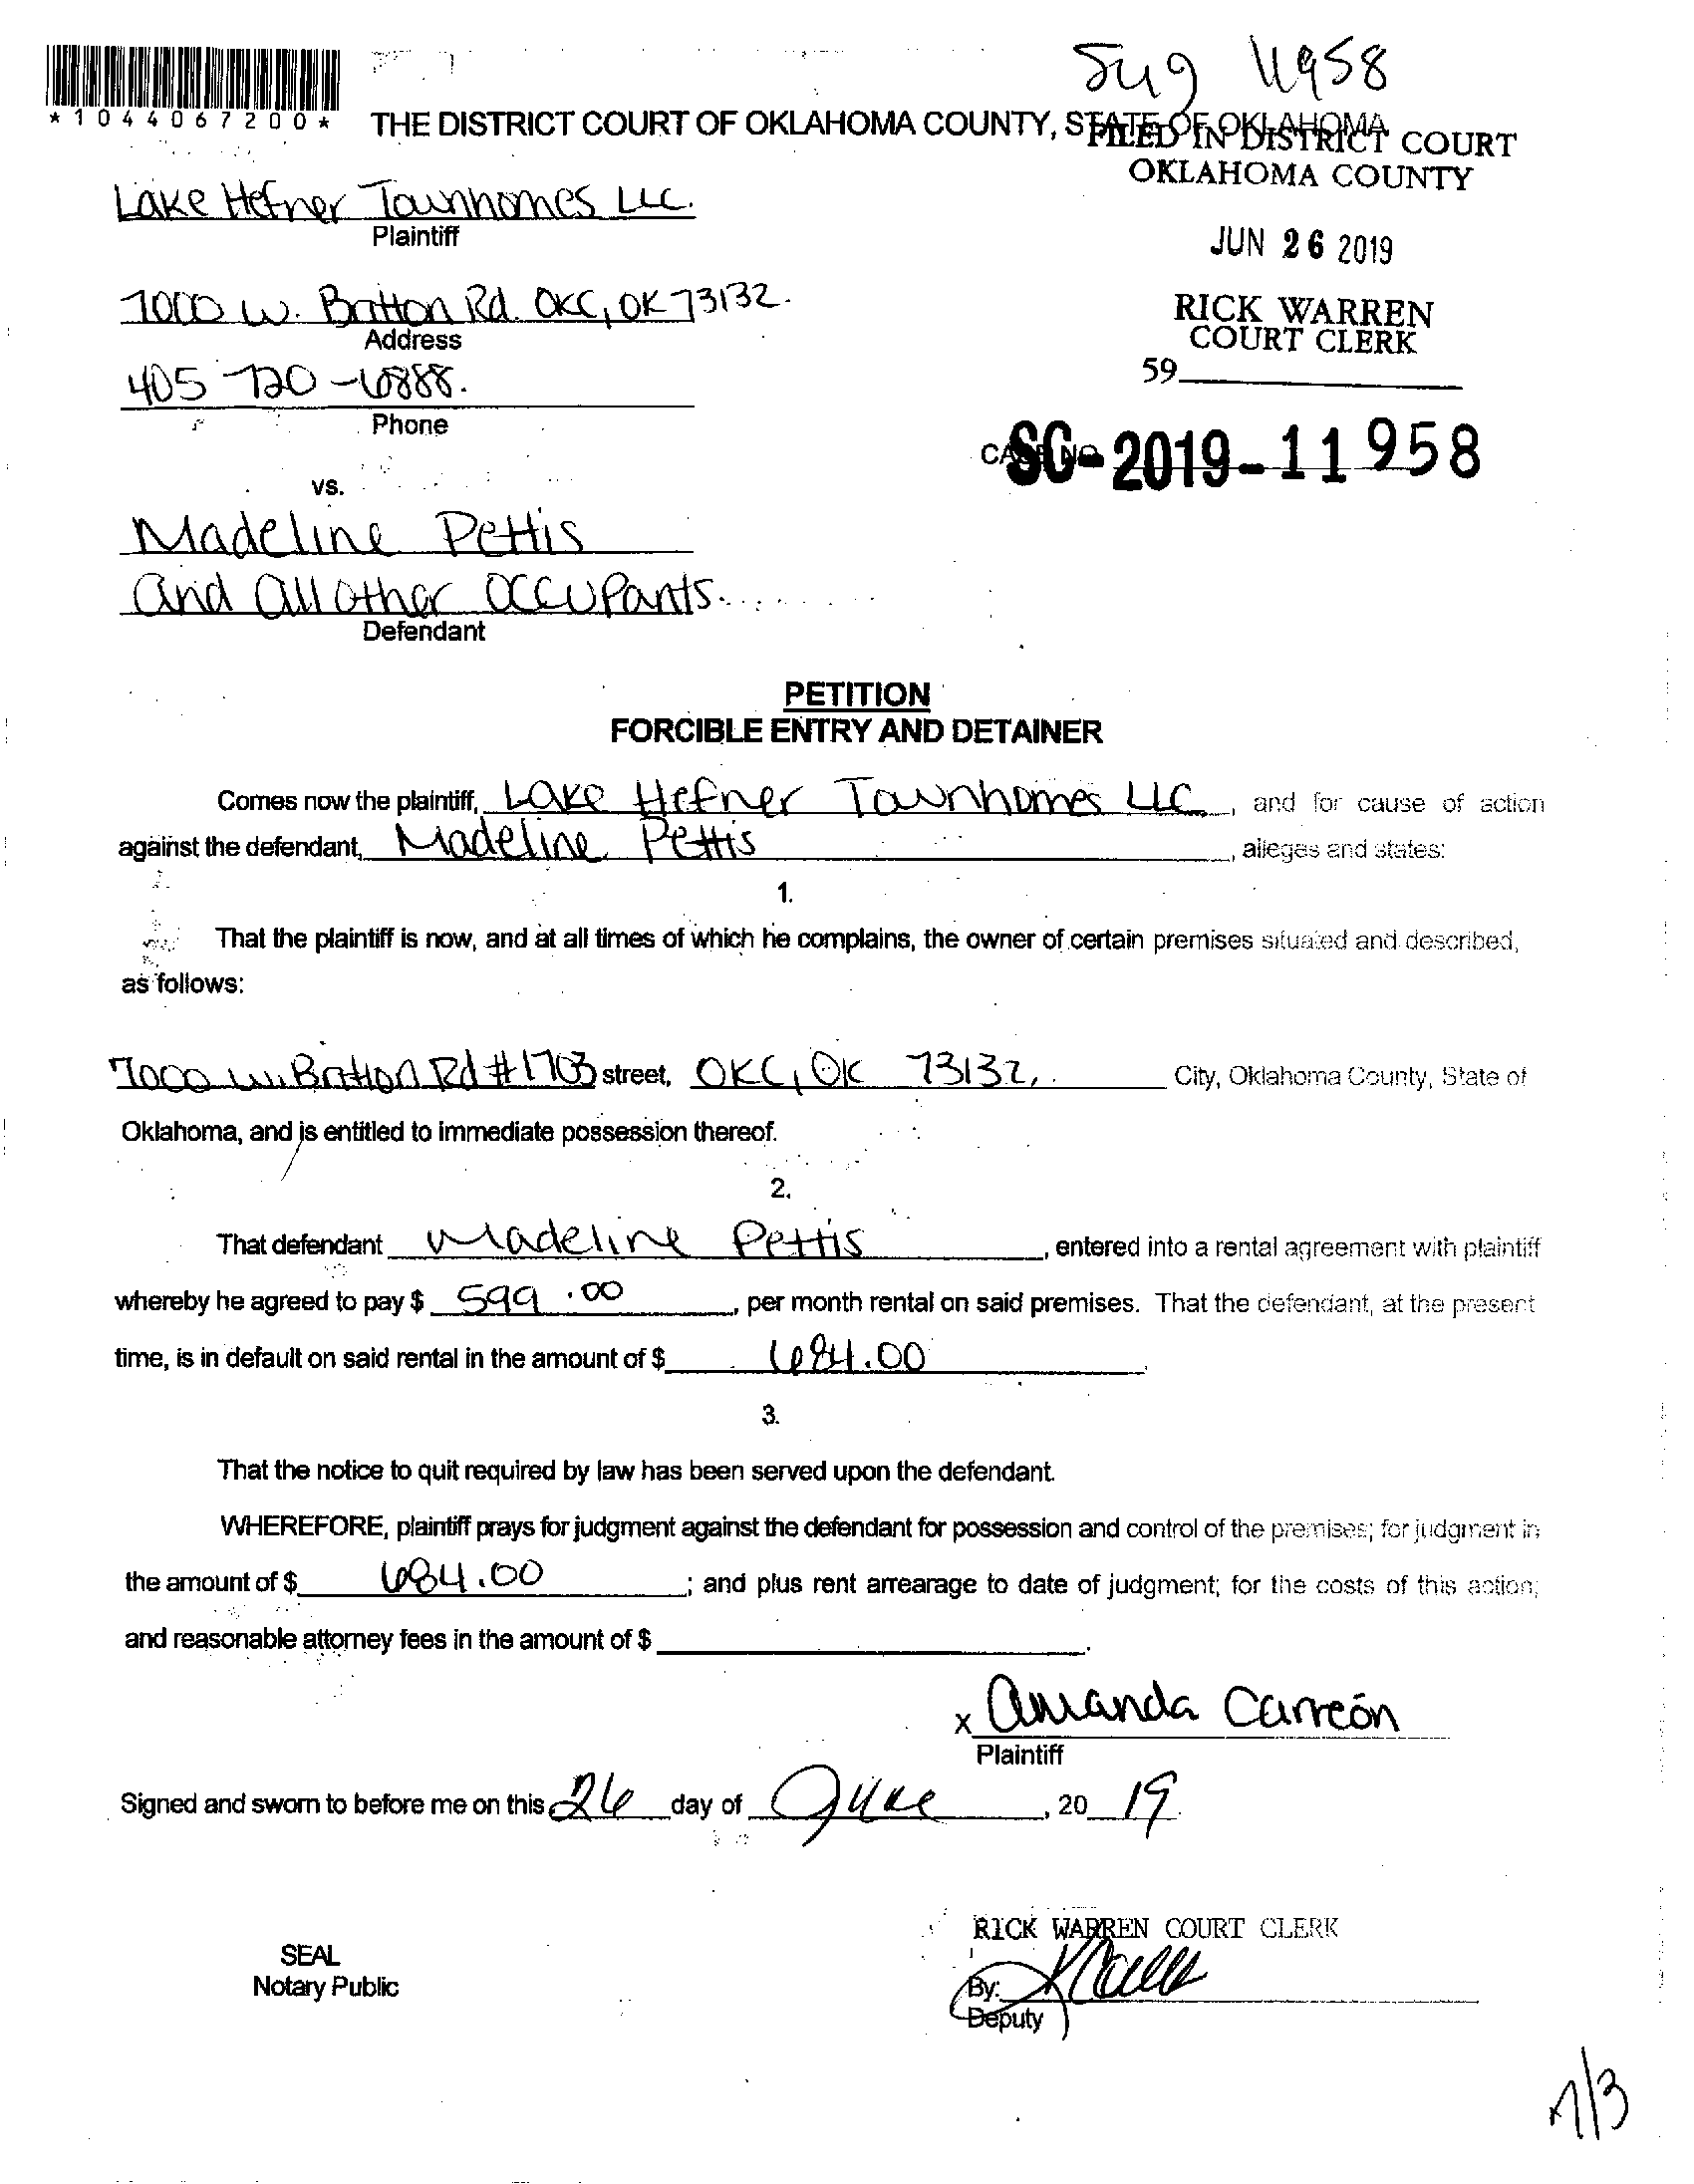 11958
*1044067200*
THE DISTRICT COURT OF OKLAHOMA COUNTY, STATE OF OKLAHOMA
FILED IN DISTRICT COURT
OKLAHOMA COUNTY
Lake Hefner Townhomes LLC.
Plaintiff
JUN 26 2019
7000 W. Britton Rd. OKC, OK 73132.
Address
RICK WARREN
COURT CLERK
405-720-6888.
59
Phone
CASE NO. SC-2019-11958
vs.
Madeline Pettis
and all other occupants.
Defendant
PETITION
FORCIBLE ENTRY AND DETAINER
Comes now the plaintiff, Lake Hefner Townhomes LLC, and for cause of action
against the defendant, Madeline Pettis, alleges and states:
1.
That the plaintiff is now, and at all times of which he complains, the owner of certain premises situated and described,
as follows:
7000 W. Britton Rd #1703 street, OKC, OK 73132, City, Oklahoma County, State of
Oklahoma, and is entitled to immediate possession thereof.
2.
That defendant Madeline Pettis, entered into a rental agreement with plaintiff
whereby he agreed to pay $ 599.00, per month rental on said premises. That the defendant, at the present
time, is in default on said rental in the amount of $ 684.00.
3.
That the notice to quit required by law has been served upon the defendant.
WHEREFORE, plaintiff prays for judgment against the defendant for possession and control of the premises; for judgment in
the amount of $ 684.00; and plus rent arrearage to date of judgment; for the costs of this action;
and reasonable attorney fees in the amount of $ .
x Amanda Carreón
Plaintiff
Signed and sworn to before me on this 26 day of June, 20 19.
RICK WARREN COURT CLERK
SEAL
Notary Public
By:
Deputy
7/3